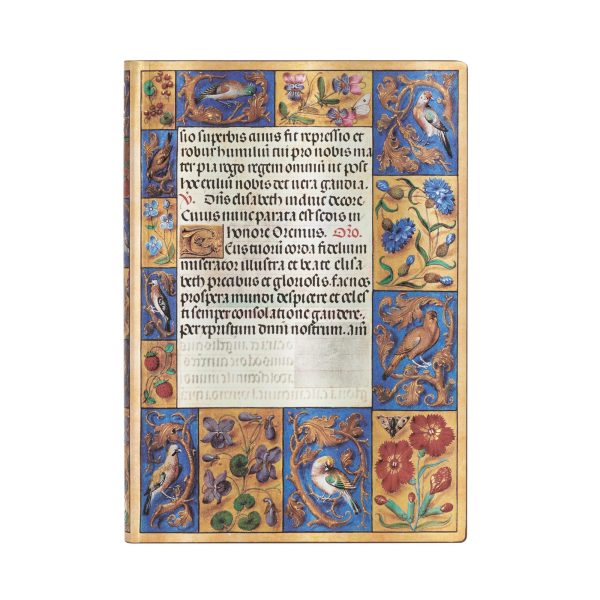 sio superbis cuius fit repressio et
robur humiliū cui pro nobis ma
ter pia rogo regem omniū ut post
hoc exiliū nobis det vera gaudia.
V. elisabeth decore
Cuius nunc parata est sedis in
honore Oremus. Oro.
Deus tuorū corda fidelium
miserator illustra et beate elisa
beth precibus et gloriosis fac nos
prospera mundi despicere et celes
ti semper consolatione gaudere.
per xpristum dnm nostrum. am